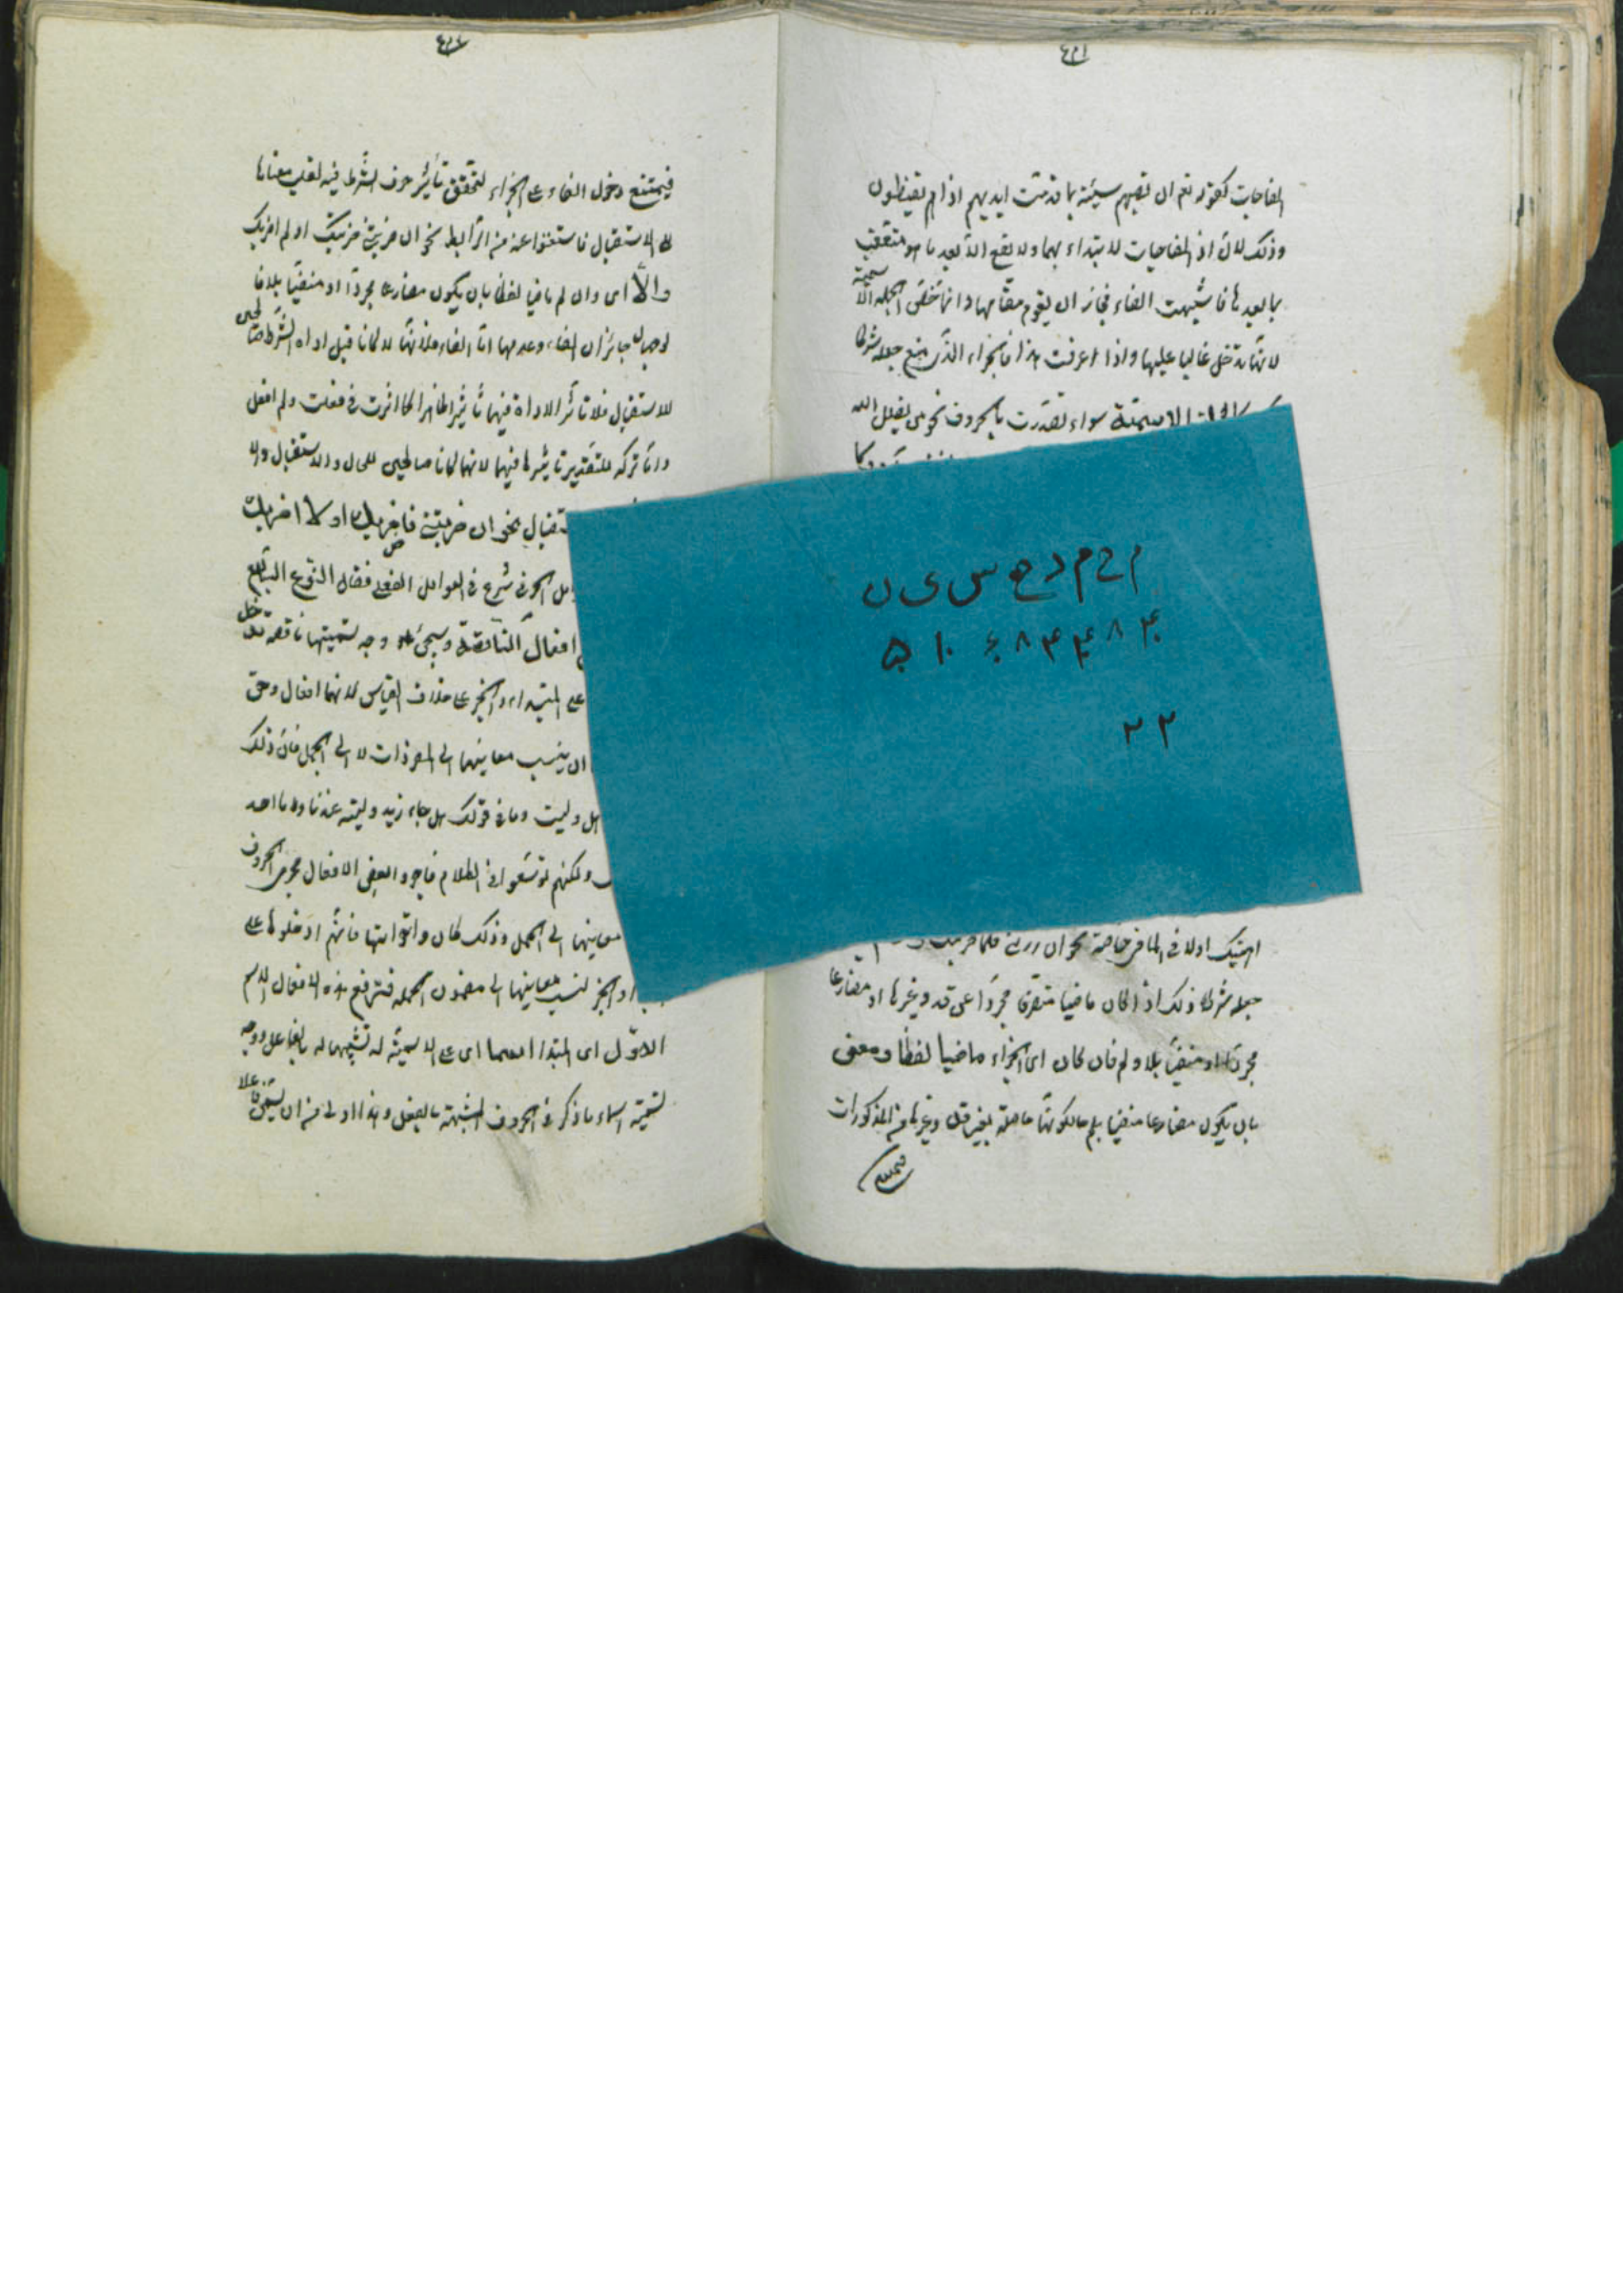 المفاجات كقوله تعم ان تصبهم سيئة بما قدمت ايديهم اذا هم يقنطون
وذلك لان اذ المفاجيات لا يبتداء بهما ولا تقع الا بعد ما هو متعقب
بما بعدها فاشبهت الفاء فجاز ان يقوم مقامها وانما تخص الجملة الاسمية
لانها تدخل غالبا عليها واذا عرفت هذا فالجزاء الذى يمنع جعله شرطا
الاسمية سواء تصدرت بالحروف نحو من يضلل الله
جعله شرطا وذلك اذا كان ماضيا متصرفا مجردا عن قد وغيرها او مضارعا
مجردا او منفيا بلا ولم فان كان اى الجزاء ماضيا لفظا ومعنى
بان يكون مضارعا منفيا بلم حالكونها حاصلة بغير قد وغيرها من المذكورات
فيمتنع
م ح م د ح س ى ن
٢٢
فيمتنع دخول الفاء على الجزاء لتحقق تأثير حرف الشرط فيه لقلب معناها
الى الاستقبال فاستغنوا عنه من الرابط نحو ان ضربتنى ضربتك او لم اضربك
والا اى وان لم ماضيا لفظا بان يكون مضارعا مجردا او منفيا بلا فا
لوجهان جائزان الفاء وعدمها اما الفاء فلانهما كانا قبل اداة الشرط صالحين
للاستقبال فلا تأثر الاداة فيهما تأثيرا ظاهرا كما اثرت فى فعلت ولم افعل
واما تركه فلتقدير تأثيرها فيهما لانهما كانا صالحين للحال والاستقبال
نحو ان ضربتنى فاضربك او لا اضربك
شرع فى العوامل الفعلى فقال النوع السابع
افعال الناقصة وسيجئ وجه تسميتها ناقصة تدخل
على المبتداء والخبر على خلاف القياس لانها افعال وحق
ان ينسب معانيها الى المفردات لا الى الجمل فان ذلك
هل وليت وما فى قولك هل جاء زيد وليته عندنا وما احد
ولكنهم توسعوا فى الكلام فاجروا بعض الافعال مجرى الحروف
معانيها الى الجمل وذلك كان واخواتها فانهم ادخلوها على
والخبر لنسب معانيها الى مضمون الجملة فترفع هذه الافعال الاسم
الاول اى المبتدا اسما اى على الاسمية له تشبيها له بالفاعل ووجه
تسميته اسماء ما ذكر فى الحروف المشبهة بالفعل وهذا اولى من ان يسمى فاعلا